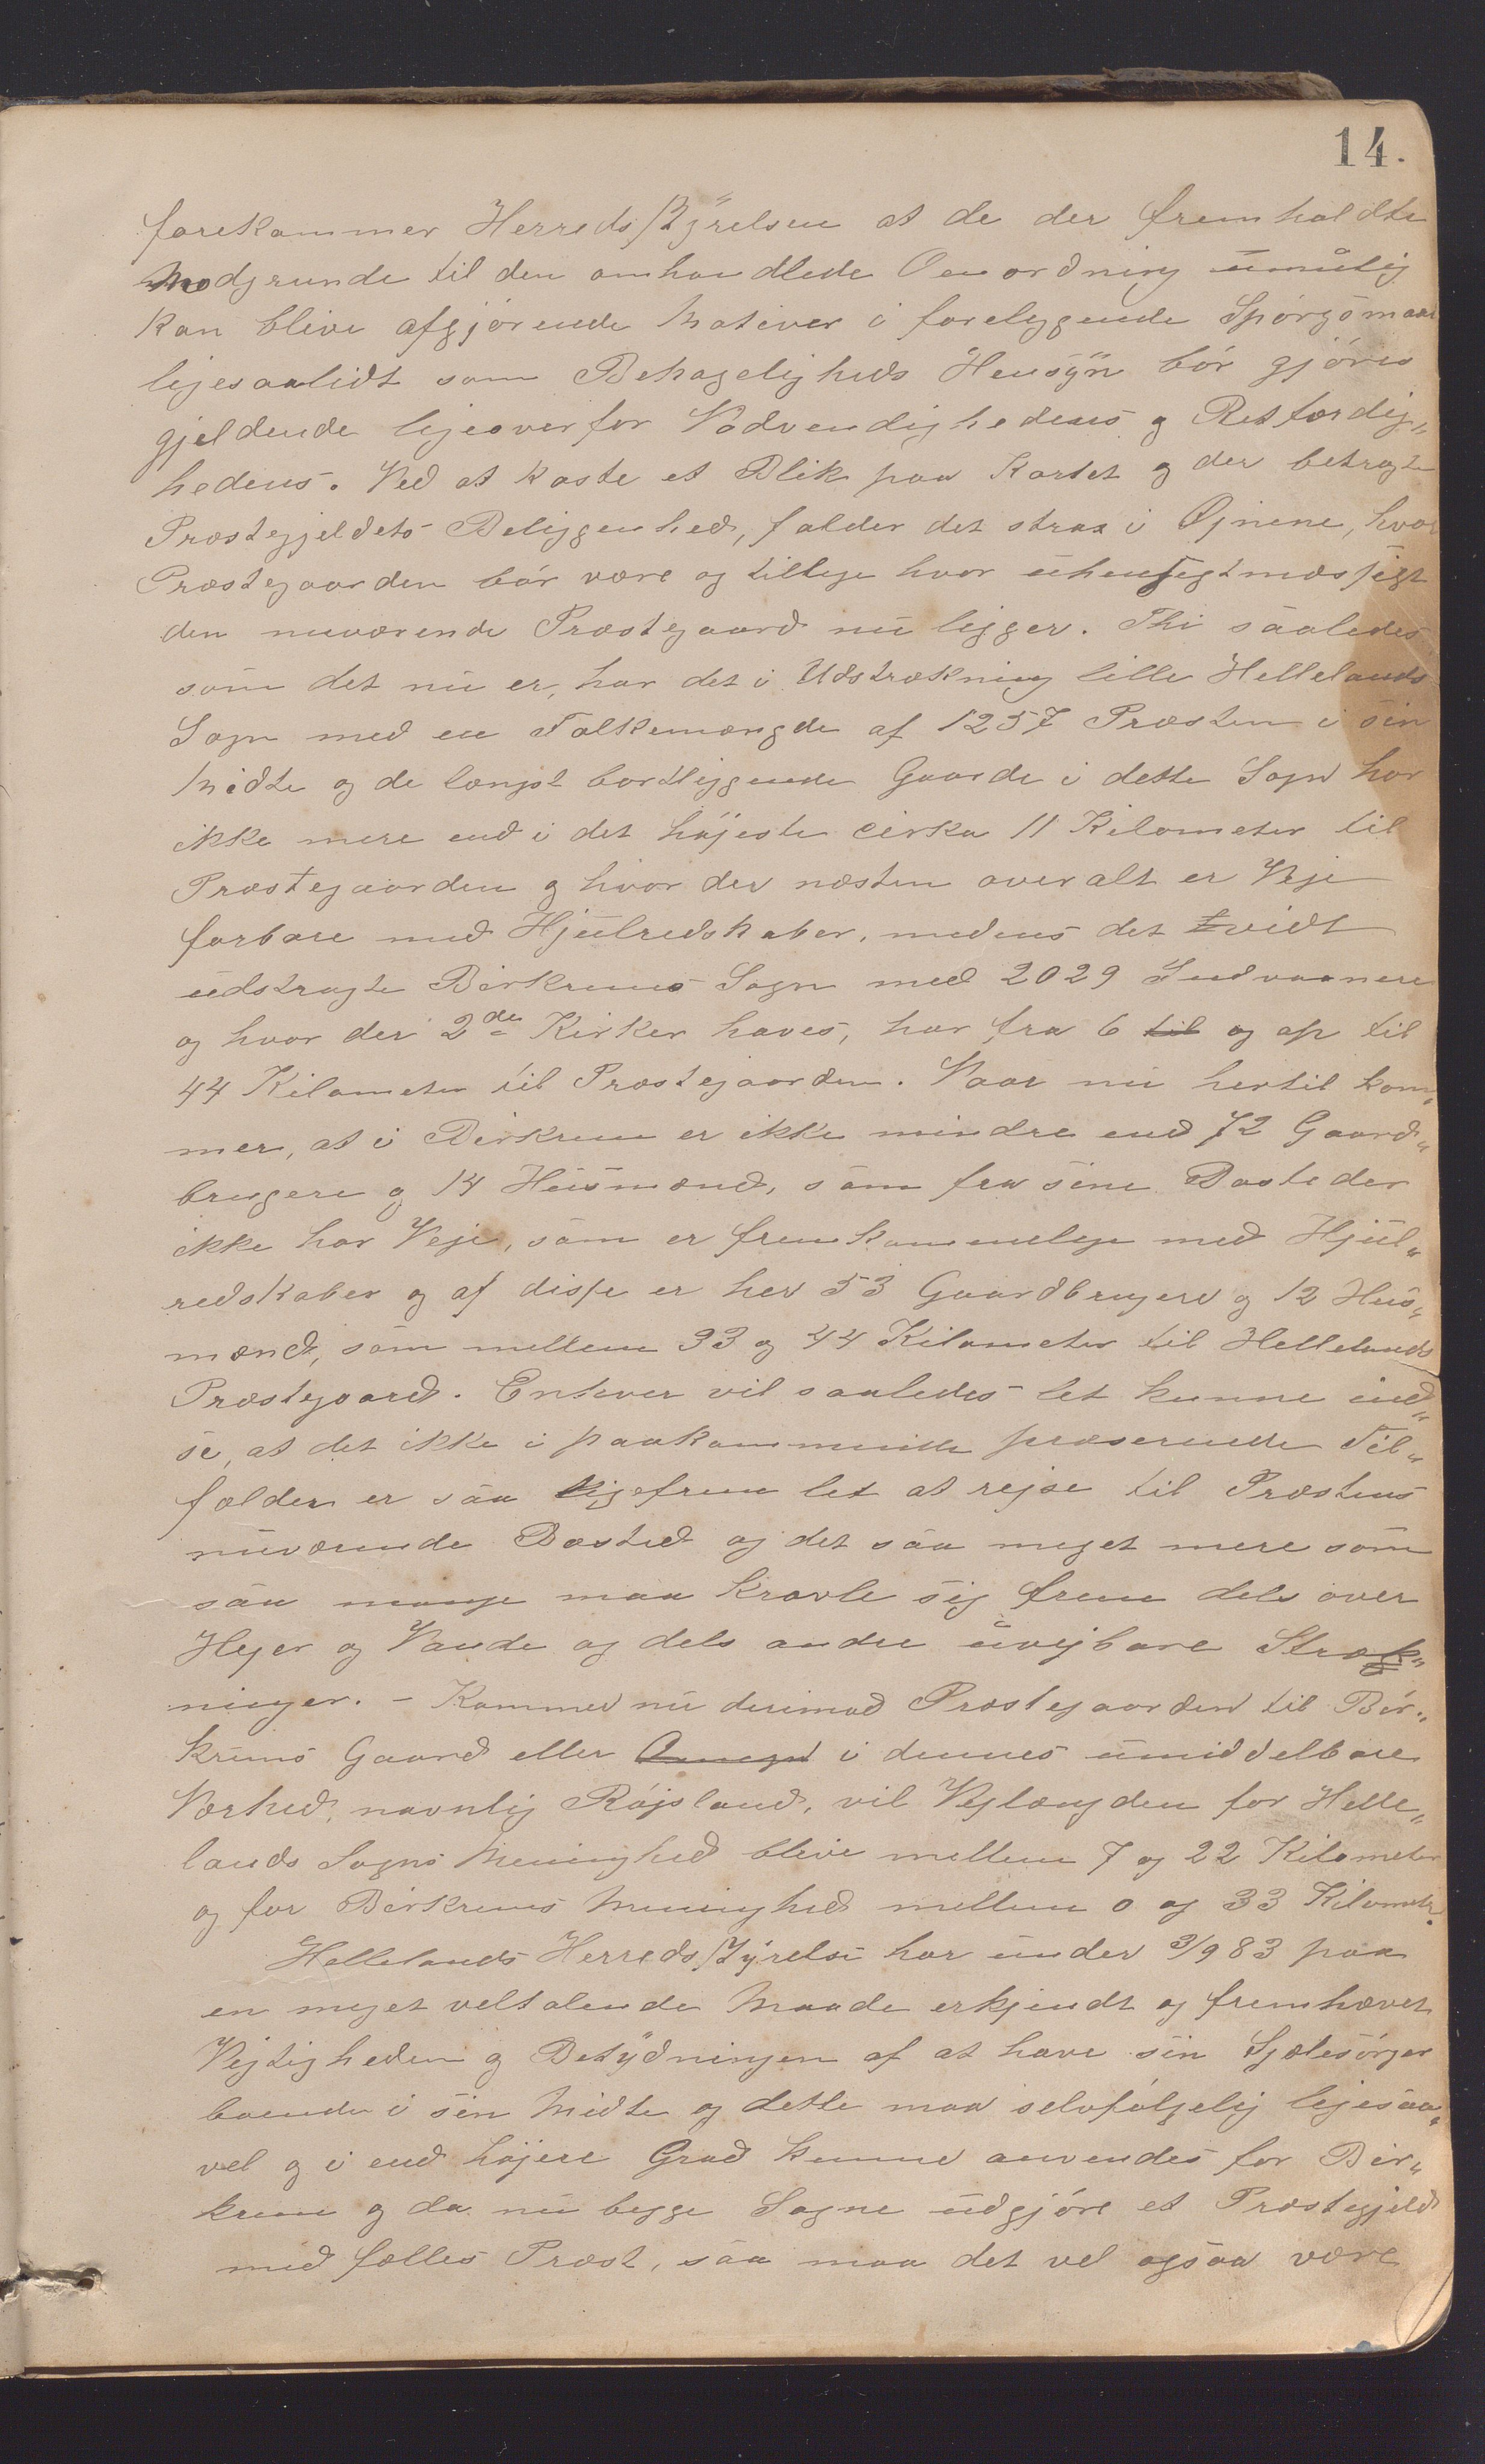 14.
forekommer Herredsstyrelsen at de der fremholdte
Modgrunde til den omhandlede Omordning umulig
kan blive afgjørende Motiver i foreliggende Spørgsmaal
ligesaalidt som Behageligheds Hensyn bør gjøres
gjeldende ligeoverfor Nødvendighedens og Retfærdig„
hedens. Ved at kaste et Blik paa Kartet og der betragte
Præstegjeldets Beliggenhed, falder det strax i Øjnene, hvor
Præstegaarden bør være og tillige hvor uhensigtmæssigt
den nuværende Præstegaard nu ligger. Thi saaledes
som det nu er, har det i Udstrækning lille Hellelands
Sogn med en Folkemængde af 1257 Præsten i sin
Midte og de længst bortliggende Gaarde i dette Sogn har
ikke mere end i det højeste cirka 11 Kilometer til
Præstegaarden og hvor der næsten overalt er Veje
farbare med Hjulredskaber, medens det vidt
udstragte Birkrems Sogn med 2029 Indvaanere
og hvor der 2de Kirker haves, har fra 6 til og op til
44 Kilometer til Præstegaarden. Naar nu hertil kom„
mer, at i Birkrem er ikke mindre end 72 Gaard„
brugere og 14 Husmænd, som fra sine Bosteder
ikke har Veje, som er fremkommelige med Hjul„
redskaber og af disse er her 53 Gaardbrugere og 12 Hus„
mænd, som mellem 33 og 44 Kilometer til Hellelands
Præstegaard. Enhver vil saaledes let kunne ind„
se, at det ikke i paakommende presserende Til„
fælder er saa ligefrem let at rejse til Præstens
nuværende Bosted og det saa meget mere som
saa mange maa kravle sig frem dels over
Hejer og Vande og dels andre uvejbare Stræk„
ninger. – Kommer nu derimod Præstegaarden til Bir„
krems Gaard eller Omegn i dennes umiddelbare
Nærhed, navnlig Røjsland, vil Vejlængden for Helle„
lands Sogns Menighed blive mellem 7 og 22 Kilometer
og for Birkrems Menighed mellem 0 og 33 Kilometr.
Hellelands Herredsstyrelse har under 3/9 83 paa
en meget veltalende Maade erkjendt og fremhævet
Vigtigheden og Betydningen af at have sin Sjælesørger
boende i sin Midte og dette maa selvfølgelig ligesaa„
vel og i end højere Grad kunne anvendes for Bir„
krem og da nu begge Sogne udgjøre et Præstegjeld
med fælles Præst, saa maa det vel ogsaa være